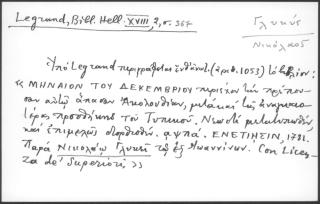 Legrand, Bibl. Hell. XVIII, 2, σ. 367
Γλυκύς
Νικόλαος
Ὑπὸ Legrand περιγράφεται ἐνθ' ἀνωτ. (ἀριθ. 1053) τὸ βιβλίον:
« ΜΗΝΑΙΟΝ ΤΟΥ ΔΕΚΕΜΒΡΙΟΥ περιέχον τὴν πρέπου-
σαν αὐτῷ ἅπασαν Ἀκολουθίαν, μετὰ καὶ τῆς ἀναγκαιο-
τέρας προσθήκης τοῦ Τυπικοῦ. Νεωστὶ μετατυπωθὲν,
καὶ ἐπιμελῶς διορθωθέν. αψπά. ΕΝΕΤΙΗΣΙΝ, 1781.
Παρὰ Νικολάῳ Γλυκεῖ τῷ ἐξ Ἰωαννίνων. Con Licen-
za de' Superiori »